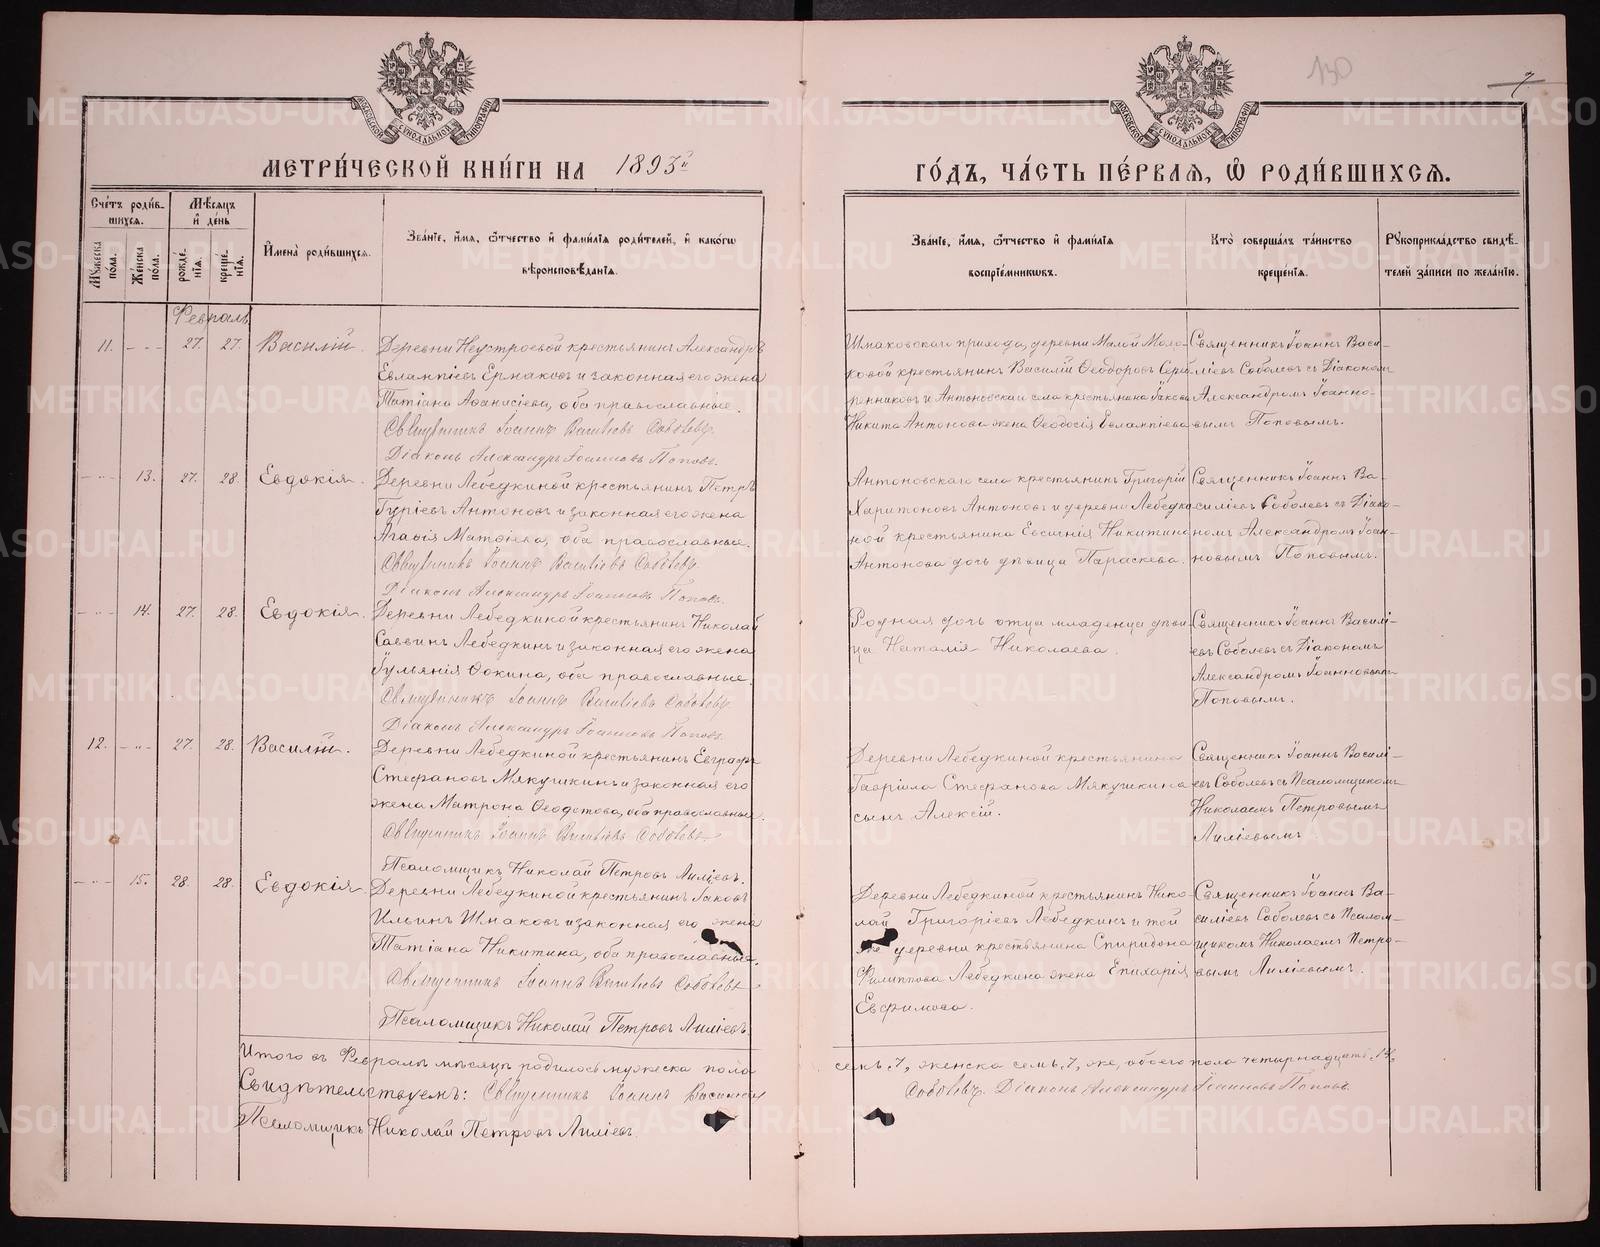 130
7
МЕТРИ́ЧЕСКОЙ КНИ́ГИ НА 1893й
ГО́ДЪ, ЧА́СТЬ ПЕ́РВАѦ, Ѡ РОДИ́ВШИХСѦ.
Сче́тъ роди́в-
шихсѧ.
Мꙋжеска по́ла.
Женска по́ла.
Мѣ́сѧцъ и҆ де́нь
рожде́нїѧ.
креще́нїѧ.
И҆мена̀ роди́вшихсѧ.
Зва́нїе, и҆́мѧ, ѻ҆́тчество и҆ фами́лїѧ роди́телей, и҆ како́гѡ
вѣроисповѣ́данїѧ.
Зва́нїе, и҆́мѧ, ѻ҆́тчество и҆ фами́лїѧ
воспрїе́мникѡвъ.
Кто̀ соверша́лъ та́инство
креще́нїѧ.
Рꙋкоприкла́дство свидѣ́-
телей за́писи по жела́нїю.
Февраль
11. - - - 27. 27. Василій.
Деревни Неустроевой крестьянинъ Александръ
Евлампіевъ Ермаковъ и законная его жена
Татіана Аѳанасіева, оба православные.
Священникъ Іоаннъ Василіевъ Соболевъ.
Діаконъ Александръ Іоанновъ Поповъ.
Шмаковскаго прихода, деревни Малой
ковой крестьянинъ Василій Ѳеодоровъ Сереб-
ренниковъ и Антоновскаго села крестьянина Іакова
Никита Антонова жена Ѳеодосія Евлампіева
Священникъ Іоаннъ Васи-
ліевъ Соболевъ съ Діакономъ
Александромъ Іоанно-
вымъ Поповымъ.
- " - 13. 27. 28. Евдокія.
Деревни Лебедкиной крестьянинъ Петръ
Гуріевъ Антоновъ и законная его жена
Агаѳія Матѳіева, оба православные.
Священникъ Іоаннъ Василіевъ Соболевъ.
Діаконъ Александръ Іоанновъ Поповъ.
Антоновскаго села крестьянинъ Григорій
Харитоновъ Антоновъ и деревни Лебедки-
ной крестьянина Никитина
Антонова дочь дѣвица Параскева.
Священникъ Іоаннъ Ва-
силіевъ Соболевъ съ Діако-
номъ Александромъ Іоан-
новымъ Поповымъ.
- " - 14. 27. 28. Евдокія.
Деревни Лебедкиной крестьянинъ Николай
Саввинъ Лебедкинъ и законная его жена
Іульянія Фокина, оба православные.
Священникъ Іоаннъ Василіевъ Соболевъ.
Діаконъ Александръ Іоанновъ Поповъ.
Родная дочь отца младенца дѣви-
ца Наталія Николаева.
Священникъ Іоаннъ Василі-
евъ Соболевъ съ Діакономъ
Александромъ Іоанновымъ
Поповымъ.
12. - " - 27. 28. Василій.
Деревни Лебедкиной крестьянинъ Евграфъ
Стефановъ Мякушкинъ и законная его
жена Матрона Ѳеодотова, оба православные.
Священникъ Іоаннъ Василіевъ Соболевъ
Псаломщикъ Николай Петровъ Лиліевъ.
Деревни Лебедкиной крестьянина
Гавріила Стефанова Мякушкина
сынъ Алексій.
Священникъ Іоаннъ Василі-
евъ Соболевъ съ Псаломщикомъ
Николаемъ Петровымъ
Лиліевымъ
- " - 15. 28. 28. Евдокія.
Деревни Лебедкиной крестьянинъ Іаковъ
Ильинъ Шмаковъ и законная его жена
Татіана Никитина, оба православные.
Священникъ Іоаннъ Василіевъ Соболевъ
Псаломщикъ Николай Петровъ Лиліевъ
Деревни Лебедкиной крестьянинъ Нико-
лай Григоріевъ Лебедкинъ и той
же деревни крестьянина Спиридона
Филиппова Лебедкина жена Епихарія
Евфимова.
Священникъ Іоаннъ Ва-
силіевъ Соболевъ съ Псалом-
щикомъ Николаемъ Петро-
вымъ Лиліевымъ.
Итого въ Февралѣ мѣсяцѣ родилось мужеска пола
семь, 7, женска семь, 7, же, обоего пола четырнадцать, 14.
Свидѣтельствуемъ: Священникъ Іоаннъ Василіевъ
Соболевъ. Діаконъ Александръ Іоанновъ Поповъ.
Псаломщикъ Николай Петровъ Лиліевъ.
METRIKI.GASO-URAL.RU